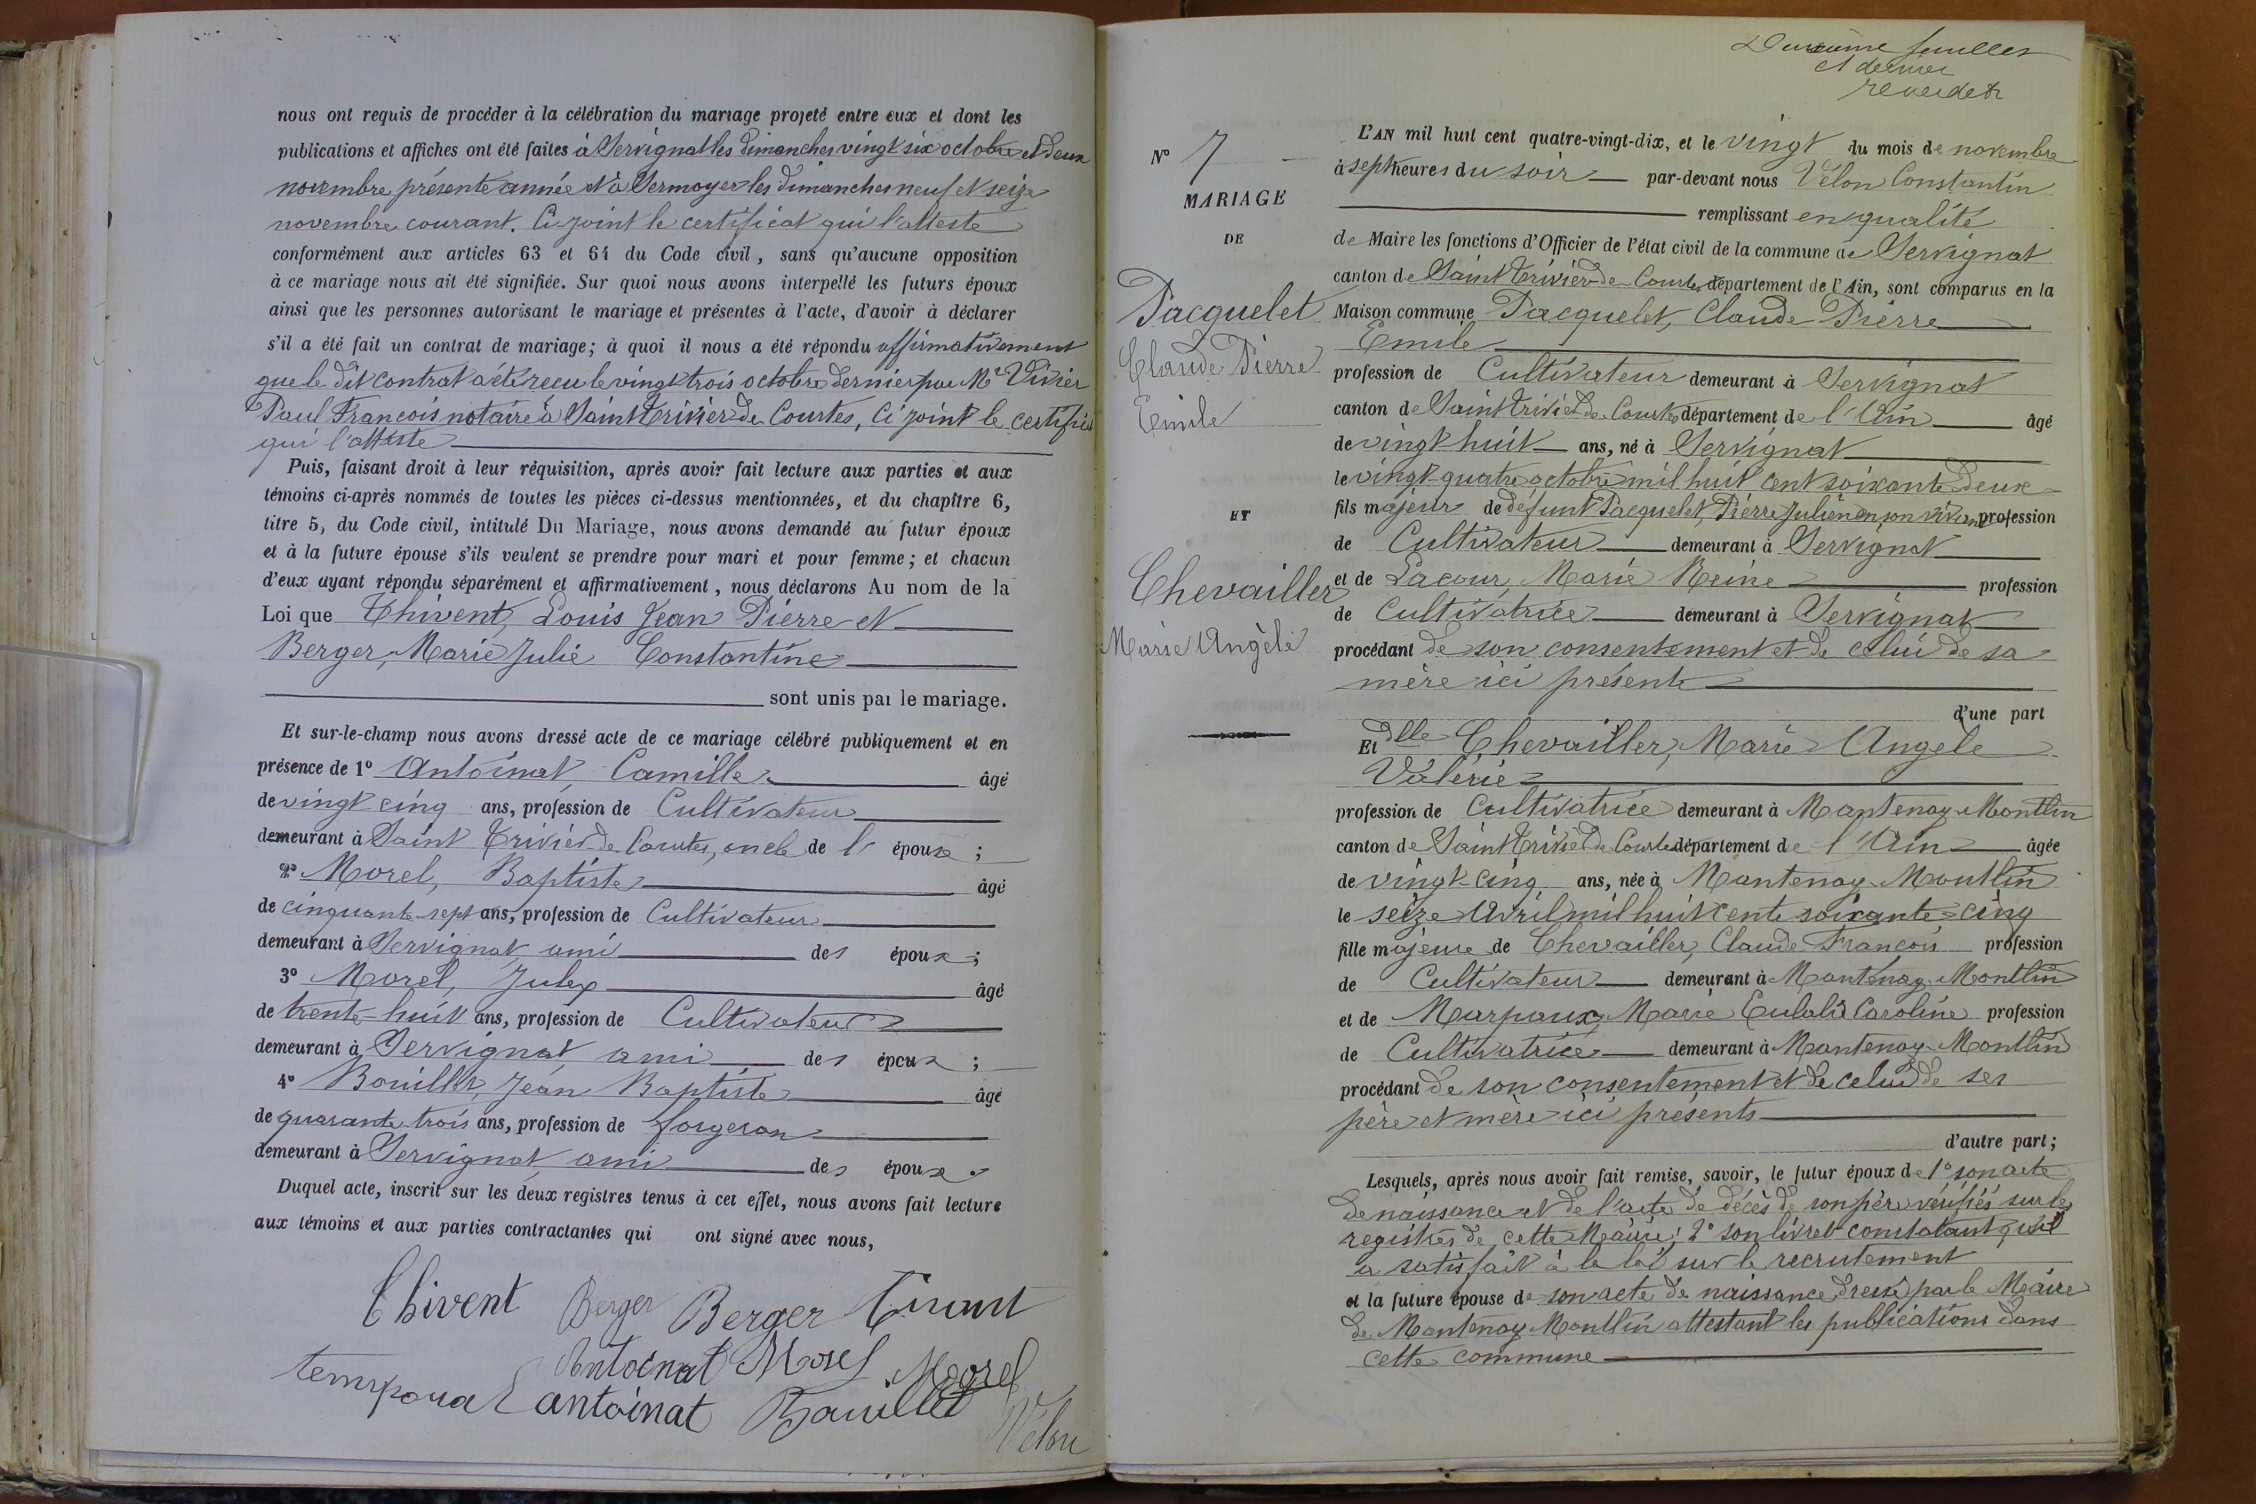 nous ont requis de procéder à la célébration du mariage projeté entre eux et dont les
publications et affiches ont été faites à Servignat les dimanches vingt six octobre et deux
novembre présente année et à Sermoyer les dimanches neuf et seize
novembre courant. Ci joint le certificat qui l'atteste
conformément aux articles 63 et 64 du Code civil, sans qu'aucune opposition
à ce mariage nous ait été signifiée. Sur quoi nous avons interpellé les futurs époux
ainsi que les personnes autorisant le mariage et présentes à l'acte, d'avoir à déclarer
s'il a été fait un contrat de mariage; à quoi il nous a été répondu affirmativement
que le dit contrat a été reçu le vingt trois octobre dernier par Me Vivier
Paul François notaire à Saint Trivier de Courtes, Ci joint le certificat
qui l'atteste
Puis, faisant droit à leur réquisition, après avoir fait lecture aux parties et aux
témoins ci-après nommés de toutes les pièces ci-dessus mentionnées, et du chapître 6,
titre 5, du Code civil, intitulé Du Mariage, nous avons demandé au futur époux
et à la future épouse s'ils veulent se prendre pour mari et pour femme; et chacun
d'eux ayant répondu séparément et affirmativement, nous déclarons Au nom de la
Loi que Thivent, Louis Jean Pierre et
Berger, Marie Julie Constantine
sont unis par le mariage.
Et sur-le-champ nous avons dressé acte de ce mariage célébré publiquement et en
présence de 1° Antoinat Camille âgé
de vingt cinq ans, profession de Cultivateur
demeurant à Saint Trivier de Courtes, oncle de l' épouse ;
2° Morel, Baptiste âgé
de cinquante-sept ans, profession de Cultivateur
demeurant à Servignat ami des époux ;
3° Morel, Jules âgé
de trente-huit ans, profession de Cultivateur
demeurant à Servignat ami des époux ;
4° Bouillet, Jean Baptiste âgé
de quarante trois ans, profession de forgeron
demeurant à Servignat ami des époux.
Duquel acte, inscrit sur les deux registres tenus à cet effet, nous avons fait lecture
aux témoins et aux parties contractantes qui ont signé avec nous,
Thivent Berger Berger
Antoinat Morel Morel
temporal antoinat Bouillet
Vélon
et dernier
N° 7
MARIAGE
DE
Pacquelet
Claude Pierre
Emile
ET
Chevailler
Marie Angèle
L'AN mil huit cent quatre-vingt-dix, et le vingt du mois de novembre
à sept heures du soir par-devant nous Vélon Constantin
remplissant en qualité
de Maire les fonctions d'Officier de l'état civil de la commune de Servignat
canton de Saint Trivier de Courtes département de l'Ain, sont comparus en la
Maison commune Pacquelet, Claude Pierre
Emile
profession de Cultivateur demeurant à Servignat
canton de Saint Trivier de Courtes département de l'Ain âgé
de vingt huit ans, né à Servignat
le vingt-quatre octobre mil huit cent soixante deux
fils majeur de défunt Pacquelet, Pierre Julien en son vivant profession
de Cultivateur demeurant à Servignat
et de Lacour, Marie Reine profession
de Cultivatrice demeurant à Servignat
procédant de son consentement et de celui de sa
mère ici présente
d'une part
Et dlle Chevailler, Marie Angèle
Valérie
profession de Cultivatrice demeurant à Mantenay-Montlin
canton de Saint Trivier de Courtes département de l'Ain âgée
de vingt-cinq ans, née à Mantenay-Montlin
le seize Avril mil huit cent soixante-cinq
fille majeure de Chevailler, Claude François profession
de Cultivateur demeurant à Mantenay-Montlin
et de Marpaux, Marie Eulalie Caroline profession
de Cultivatrice demeurant à Mantenay-Montlin
procédant de son consentement et de celui de ses
père et mère ici présents
d'autre part;
Lesquels, après nous avoir fait remise, savoir, le futur époux de 1° son acte
de naissance et de l'acte de décès de son père vérifiés sur les
registres de cette Mairie; 2° son livret constatant qu'il
a satisfait à la loi sur le recrutement
et la future épouse de son acte de naissance dressé par le Maire
de Mantenay-Montlin attestant les publications dans
cette commune